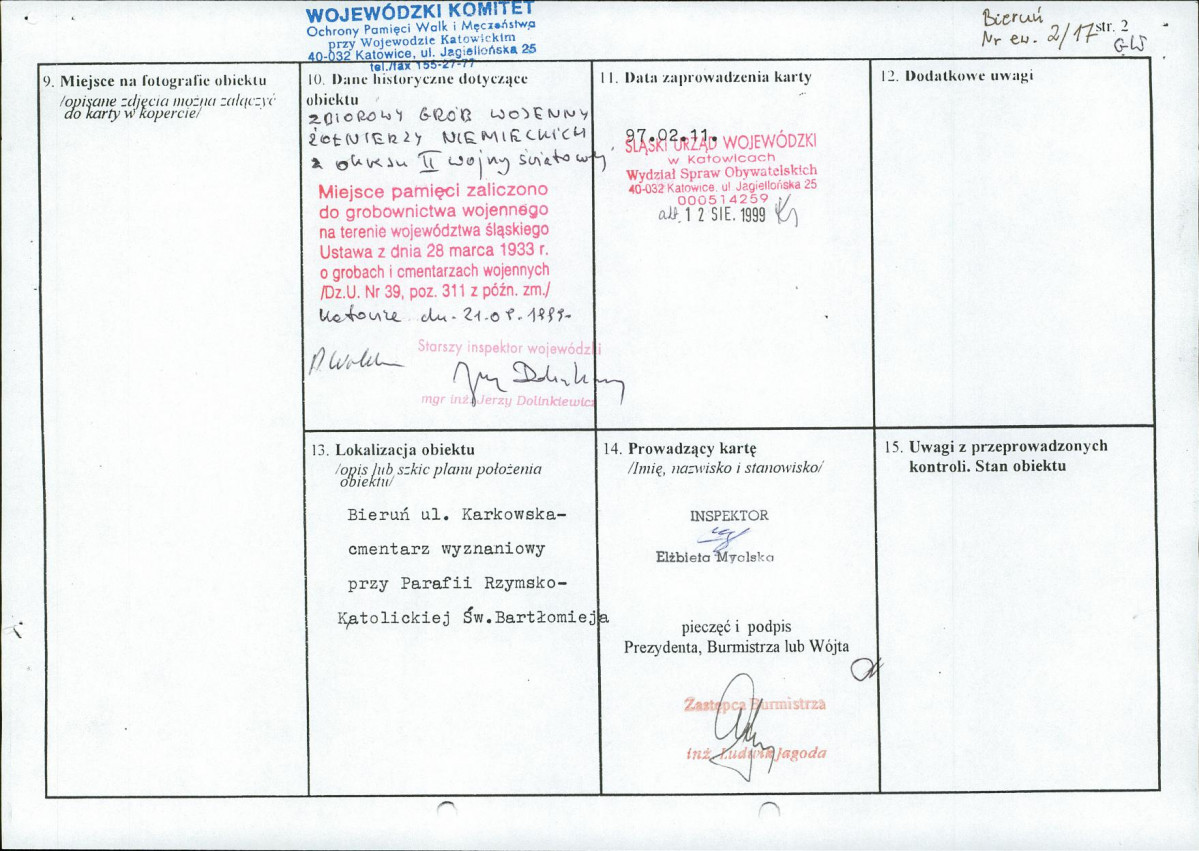 WOJEWÓDZKI KOMITET
Ochrony Pamięci Walk i Męczeństwa
przy Wojewodzie Katowickim
40-032 Katowice, ul. Jagiellońska 25
tel./fax 155-27-77
Bieruń
Nr ew. 2/17 str. 2
GW
9. Miejsce na fotografie obiektu
/opisane zdjęcia można załączyć
do karty w kopercie/
10. Dane historyczne dotyczące
obiektu
ZBIOROWY GRÓB WOJENNY
ŻOŁNIERZY NIEMIECKICH
z okresu II wojny światowej
Miejsce pamięci zaliczono
do grobownictwa wojennego
na terenie województwa śląskiego
Ustawa z dnia 28 marca 1933 r.
o grobach i cmentarzach wojennych
/Dz.U. Nr 39, poz. 311 z późn. zm./
Katowice dn. 21.09.1999.
Starszy inspektor wojewódzki
mgr inż. Jerzy Dolinkiewicz
11. Data zaprowadzenia karty
97.02.11.
ŚLĄSKI URZĄD WOJEWÓDZKI
w Katowicach
Wydział Spraw Obywatelskich
40-032 Katowice, ul. Jagiellońska 25
000514259
akt. 12 SIE. 1999
12. Dodatkowe uwagi
13. Lokalizacja obiektu
/opis lub szkic planu położenia
obiektu/
Bieruń ul. Karkowska-
cmentarz wyznaniowy
przy Parafii Rzymsko-
Katolickiej Św.Bartłomieja
14. Prowadzący kartę
/Imię, nazwisko i stanowisko/
INSPEKTOR
Elżbieta Myolska
pieczęć i podpis
Prezydenta, Burmistrza lub Wójta
Zastępca Burmistrza
inż. Ludwik Jagoda
15. Uwagi z przeprowadzonych
kontroli. Stan obiektu